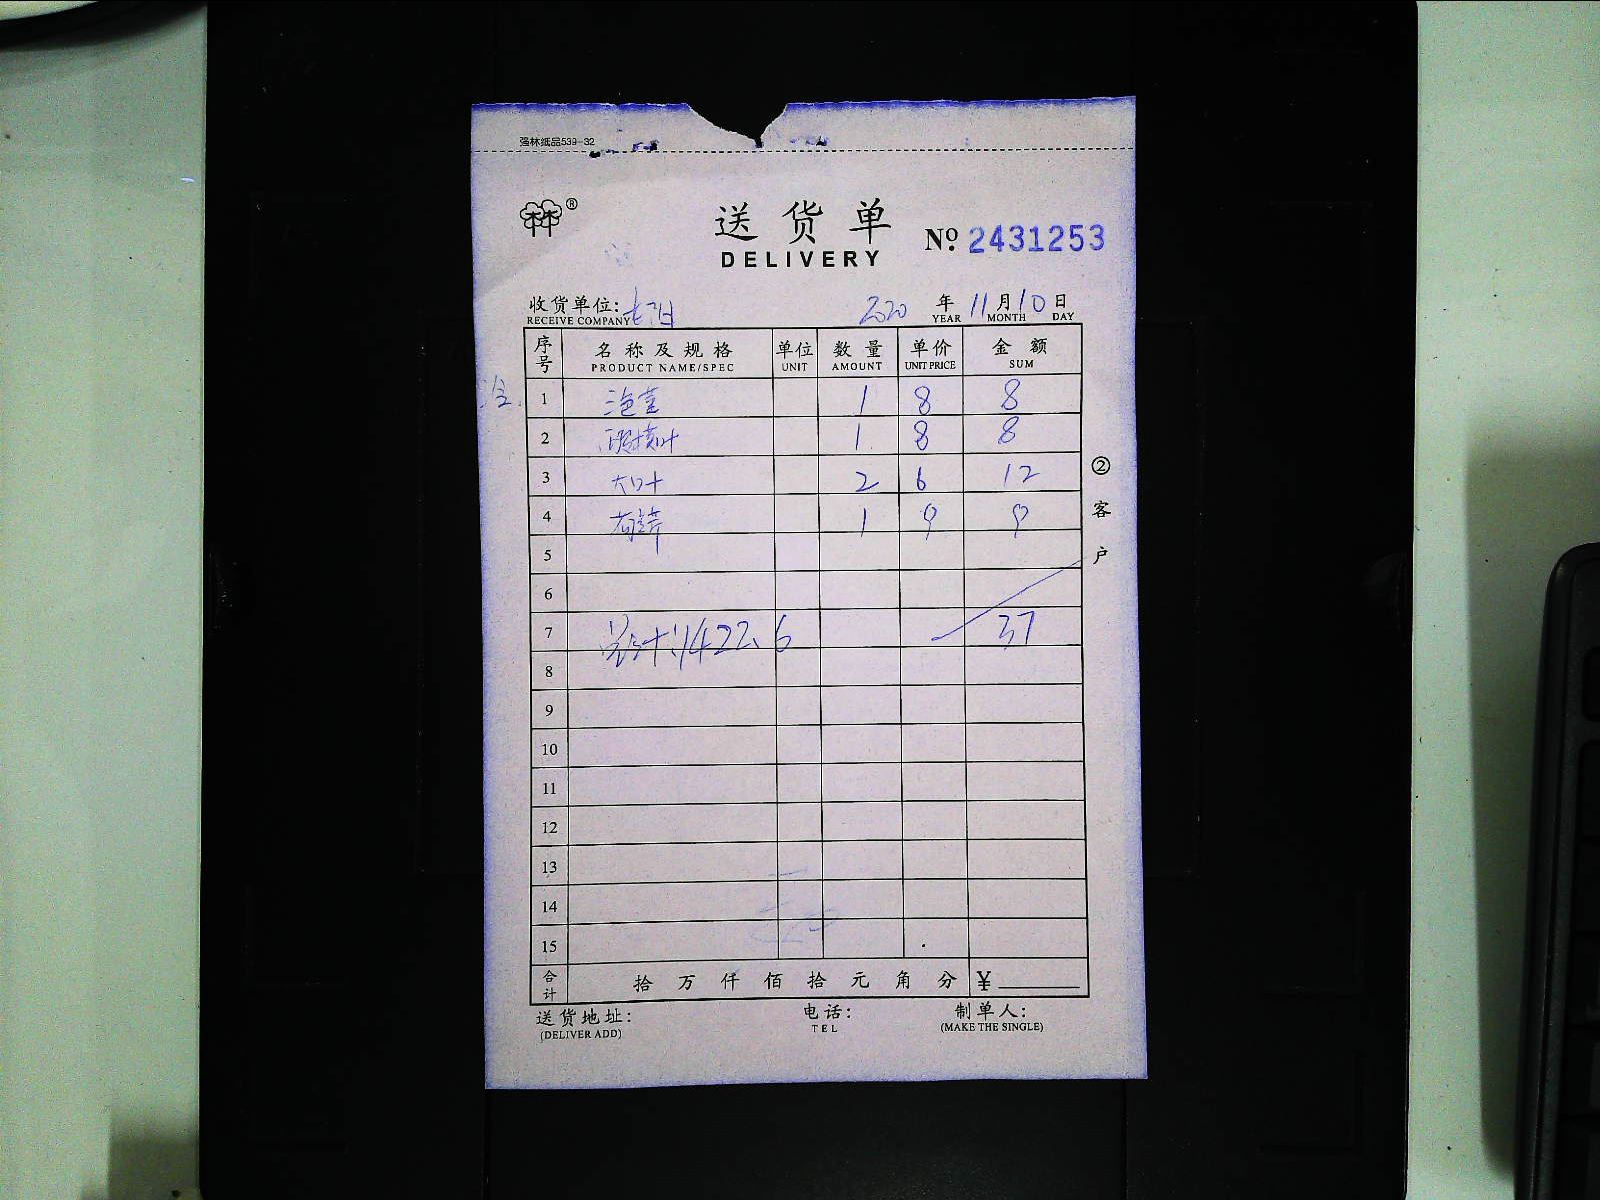 强林纸品539-32
林®
送货单
DELIVERY
No. 2431253
收货单位: 2020 年 11 月 10 日
RECEIVE COMPANY YEAR MONTH DAY
序号 名称及规格 单位 数量 单价 金额
PRODUCT NAME/SPEC UNIT AMOUNT UNIT PRICE SUM
1 1 8 8
2 1 8 8
3 大叶 2 6 12
4 1 9 9
5
6
7 总计:1422.6 37
8
9
10
11
12
13
14
15
合计 拾 万 仟 佰 拾 元 角 分 ¥
② 客户
送货地址: 电话: 制单人:
(DELIVER ADD) TEL (MAKE THE SINGLE)